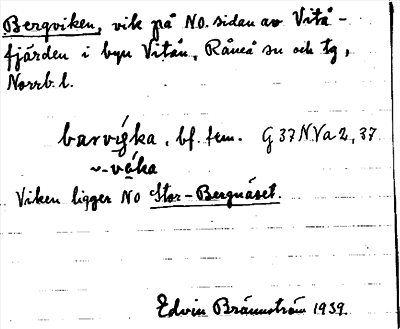 Bergviken, vik på NO. sidan av Vitå-
fjärden i byn Vitån, Råneå sn och tg,
Norrb. l.
barvı̨ka, bf. fem. G 37 N.Va 2, 37
~-vı̨ka
Viken ligger NO Stor-Bergnäset.
Edvin Brännström 1939.